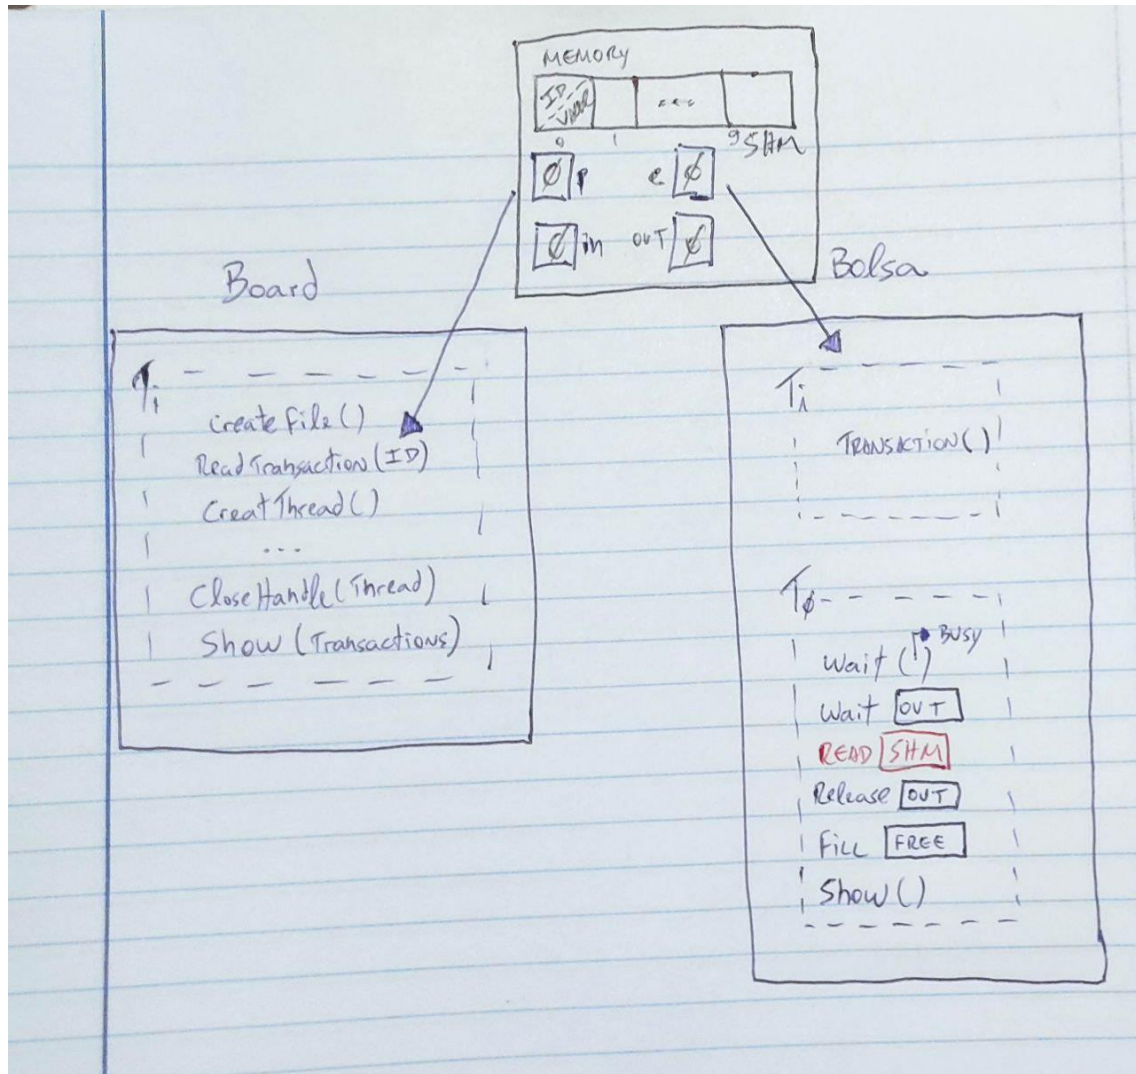 MEMORY
ID
Value
...
0 1 9 SHM
Ø p c Ø
Ø in OUT Ø
Board
Bolsa
Ti
CreateFile()
ReadTransaction(ID)
CreatThread()
...
CloseHandle(Thread)
Show (Transactions)
Ti
TRANSACTION()
TØ
BUSY
Wait ( )
Wait OUT
READ SHM
Release OUT
Fill FREE
Show ()